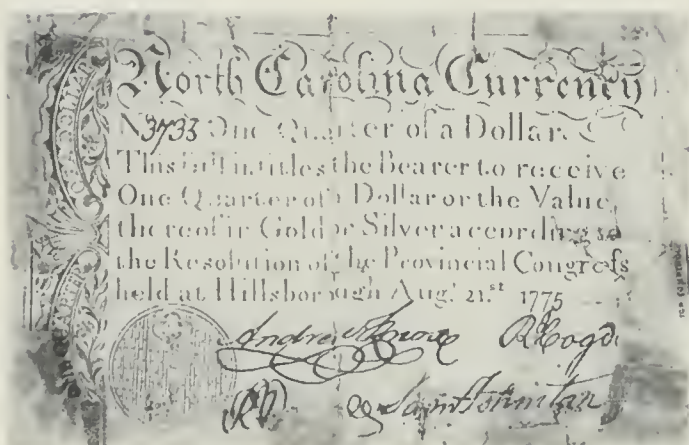 North Carolina Currency
No 3733 One Quarter of a Dollar.
This Bill intitles the Bearer to receive
One Quarter of a Dollar or the Value
thereof in Gold or Silver according to
the Resolution of the Provincial Congreſs
held at Hillsborough Aug.t 21.st 1775
Andrew Knox R Cogd
Sam Johnston